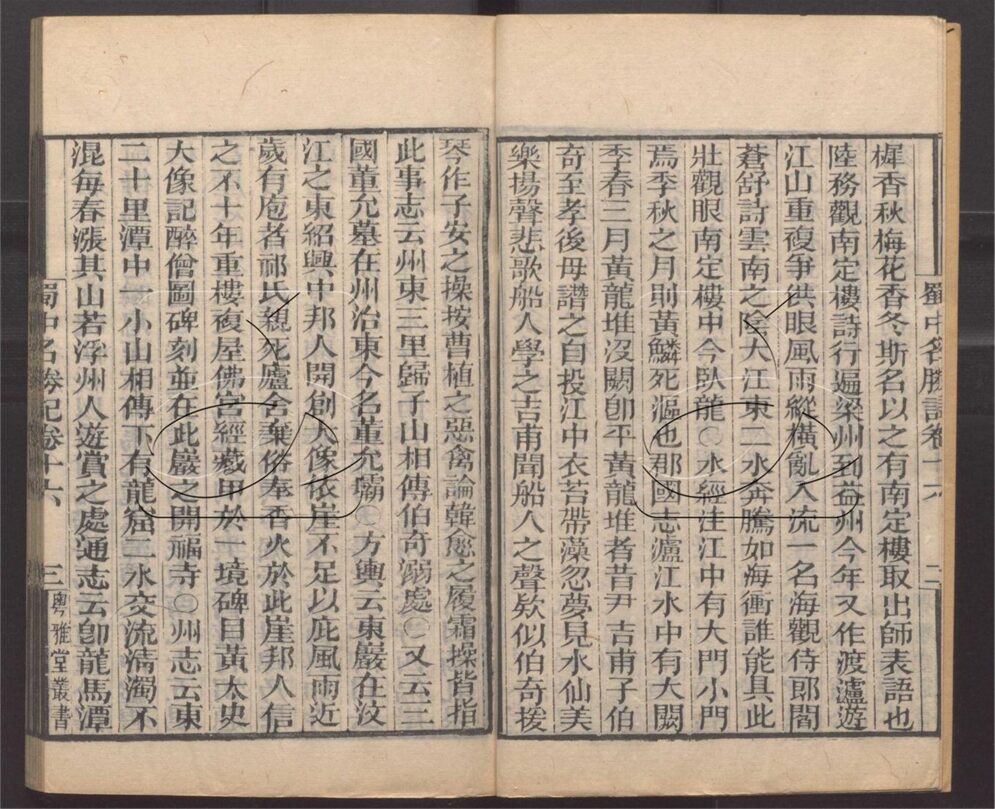 蜀中名勝記卷十六 二
樨香秋梅花香冬斯名以之有南定樓取出師表語也
陸務觀南定樓詩行遍梁州到益州今年又作渡瀘遊
江山重複爭供眼風雨縱橫亂入流一名海觀侍郎閻
蒼舒詩雲南之陰大江東二水奔騰如海衝誰能具此
壯觀眼南定樓中今臥龍〇水經注江中有大門小門
焉季秋之月則黃鱗死漚也郡國志瀘江水中有大闕
季春三月黃龍堆沒闕卽平黃龍堆者昔尹吉甫子伯
奇至孝後母譖之自投江中衣苔帶藻忽夢見水仙美
樂揚聲悲歌船人學之吉甫聞船人之聲欵似伯奇援
琴作子安之操按曹植之惡禽論韓愈之履霜操皆指
此事志云州東三里歸子山相傳伯奇溺處〇又云三
國董允墓在州治東今名董允壩〇方輿云東巖在汶
江之東紹興中邦人開創大像依崖不足以庇風雨近
歲有庖者祁氏親死廬舍棄俗奉香火於此崖邦人信
之不十年重樓複屋佛宮經藏甲於一境碑目黃太史
大像記醉僧圖碑刻並在此巖之開福寺〇州志云東
二十里潭中一小山相傳下有龍窟二水交流淸濁不
混每春漲其山若浮州人遊賞之處通志云卽龍馬潭
蜀中名勝記卷十六 三 粤雅堂叢書